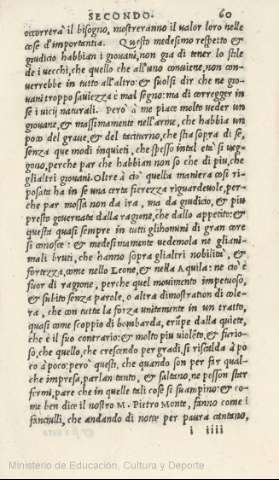 SECONDO. 60
occorrerà il bisogno, mostreranno il valor loro nelle
cose d'importantia. Questo medesimo respetto &
giudicio habbian i giovani, non gia di tener lo stile
de i vecchi, che quello che all'uno conviene, non con-
verrebbe in tutto all'altro: & suolsi dir che ne gio-
vani troppo saviezza è mal segno: ma di corregger in
se i vicij naturali. Però à me piace molto veder un
giovane, & massimamente nell'arme, che habbia un
poco del grave, & del taciturno, che stia sopra di se,
senza que modi inquieti, che spesso in tal età si veg-
gono, perche par che habbian non so che di piu, che
gli altri giovani. Oltre à ciò quella maniera così ri-
posata ha in se una certa fierezza riguardevole, per-
che par mossa non da ira, ma da giudicio, & piu
presto governata dalla ragione, che dallo appetito: &
questa quasi sempre in tutti gli homini di gran core
si conosce: & medesimamente vedemola ne gli ani-
mali bruti, che hanno sopra gli altri nobilità, &
fortezza, come nello Leone, & nella Aquila: ne ciò è
fuor di ragione, perche quel movimento impetuoso,
& subito senza parole, o altra dimostration di cole-
ra, che con tutta la forza unitamente in un tratto,
quasi come scoppio di bombarda, erūpe dalla quiete,
che è il suo contrario: è molto piu violēto, & furio-
so, che quello, che crescendo per gradi, si riscalda à po
co à poco: però questi, che quando son per far qual-
che impresa, parlan tanto, & saltano, ne posson star
fermi, pare che in quelle tali cose si svampino: & co-
me ben dice il nostro M. Pietro Monte, fanno come i
fanciulli, che andando di notte per paura cantano,
i iiii
Ministerio de Educación, Cultura y Deporte